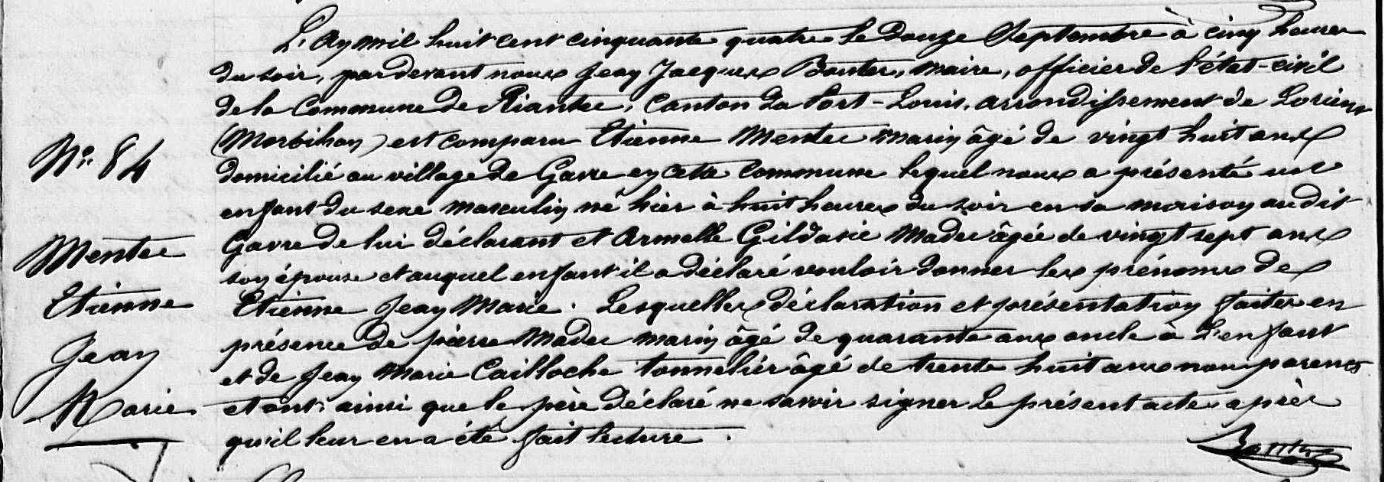 L'an mil huit cent cinquante quatre le douze Septembre à cinq heures
du soir, par devant nous Jean Jacques Bonter, maire, officier de l'état-civil
de la Commune de Riantec, Canton du Port-Louis, arrondissement de Lorient
(Morbihan) est comparu Etienne Mentec marin âgé de vingt huit ans
domicilié au village de Gavre en cette commune lequel nous a présenté un
enfant du sexe masculin né hier à huit heures du soir en sa maison au dit
Gavre de lui déclarant et Armelle Gildasie Madec âgée de vingt sept ans
son épouse et auquel enfant il a déclaré vouloir donner les prénoms de
Etienne Jean Marie. Lesquelles déclaration et présentation faites en
présence de pierre Madec marin âgé de quarante ans oncle à l'enfant
et de Jean Marie Cailloche tonnelier âgé de trente huit ans non parents
et ont ainsi que le père déclaré ne savoir signer le présent acte après
qu'il leur en a été fait lecture.
No. 84
Mentec
Etienne
Jean
Marie